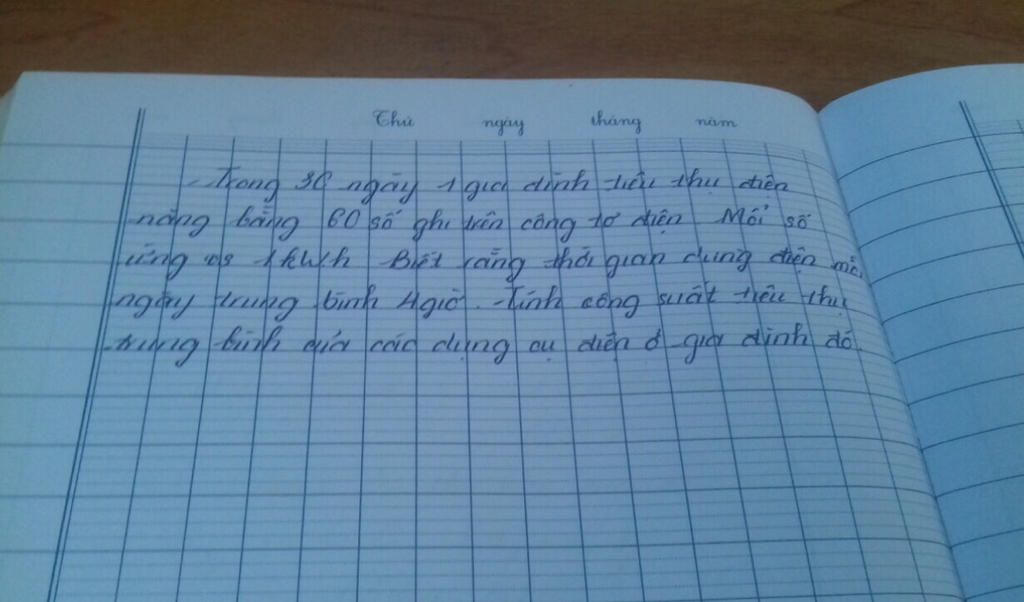 Thứ ngày tháng năm
Trong 30 ngày 1 gia đình tiêu thụ điện
năng bằng 60 số ghi trên công tơ điện. Mỗi số
ứng vs 1kWh Biết rằng thời gian dùng điện mỗi
ngày trung bình 4giờ. Tính công suất tiêu thụ
trung bình của các dụng cụ điện ở gia đình đó.